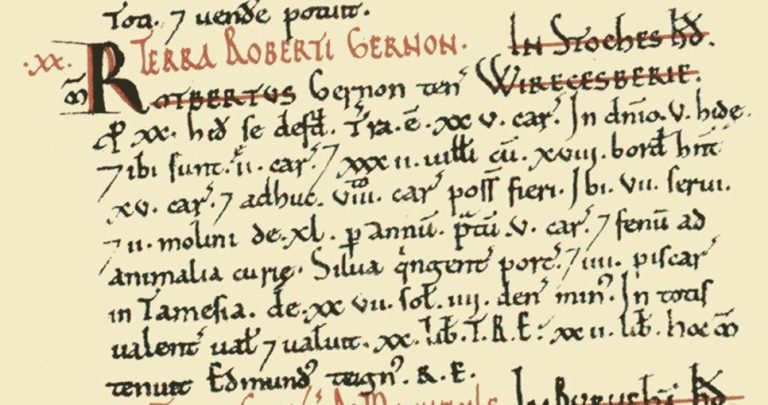 Tota. ⁊ vendẽ potuit.
.xx. TERRA ROBERTI GERNON. IN Stoches hđ.
ꝏ ROTBERTUS Gernon ten̄ WIRECESBERIE.
ꝓ xx. hid se defđ. Tr̄a.ē. xxv. car̄. In dn̄io.v. hidę.
⁊ ibi sunt. ii. car̄. ⁊ xxxii. uilłi cū. xviii. borđ hn̄t
xv. car̄. ⁊ adhuc. viii. car̄ poss̄ fieri. Ibi. vii. serui.
⁊ ii. molini de. xl. p annū. p̄tū. v. car̄. ⁊ fenū ad
animalia curię. Silua q̄ngent̄ porc̄. ⁊ iiii. piscar̄
in Tamesia. de. xxvii. soł. iiij. den̄ min⁹. In totis
ualent̄ uał ⁊ ualuit. xx. lib̄. T.R.E. xxii. lib̄. hoc ꝏ
tenuit Edmund⁹ teign⁹. R.E.